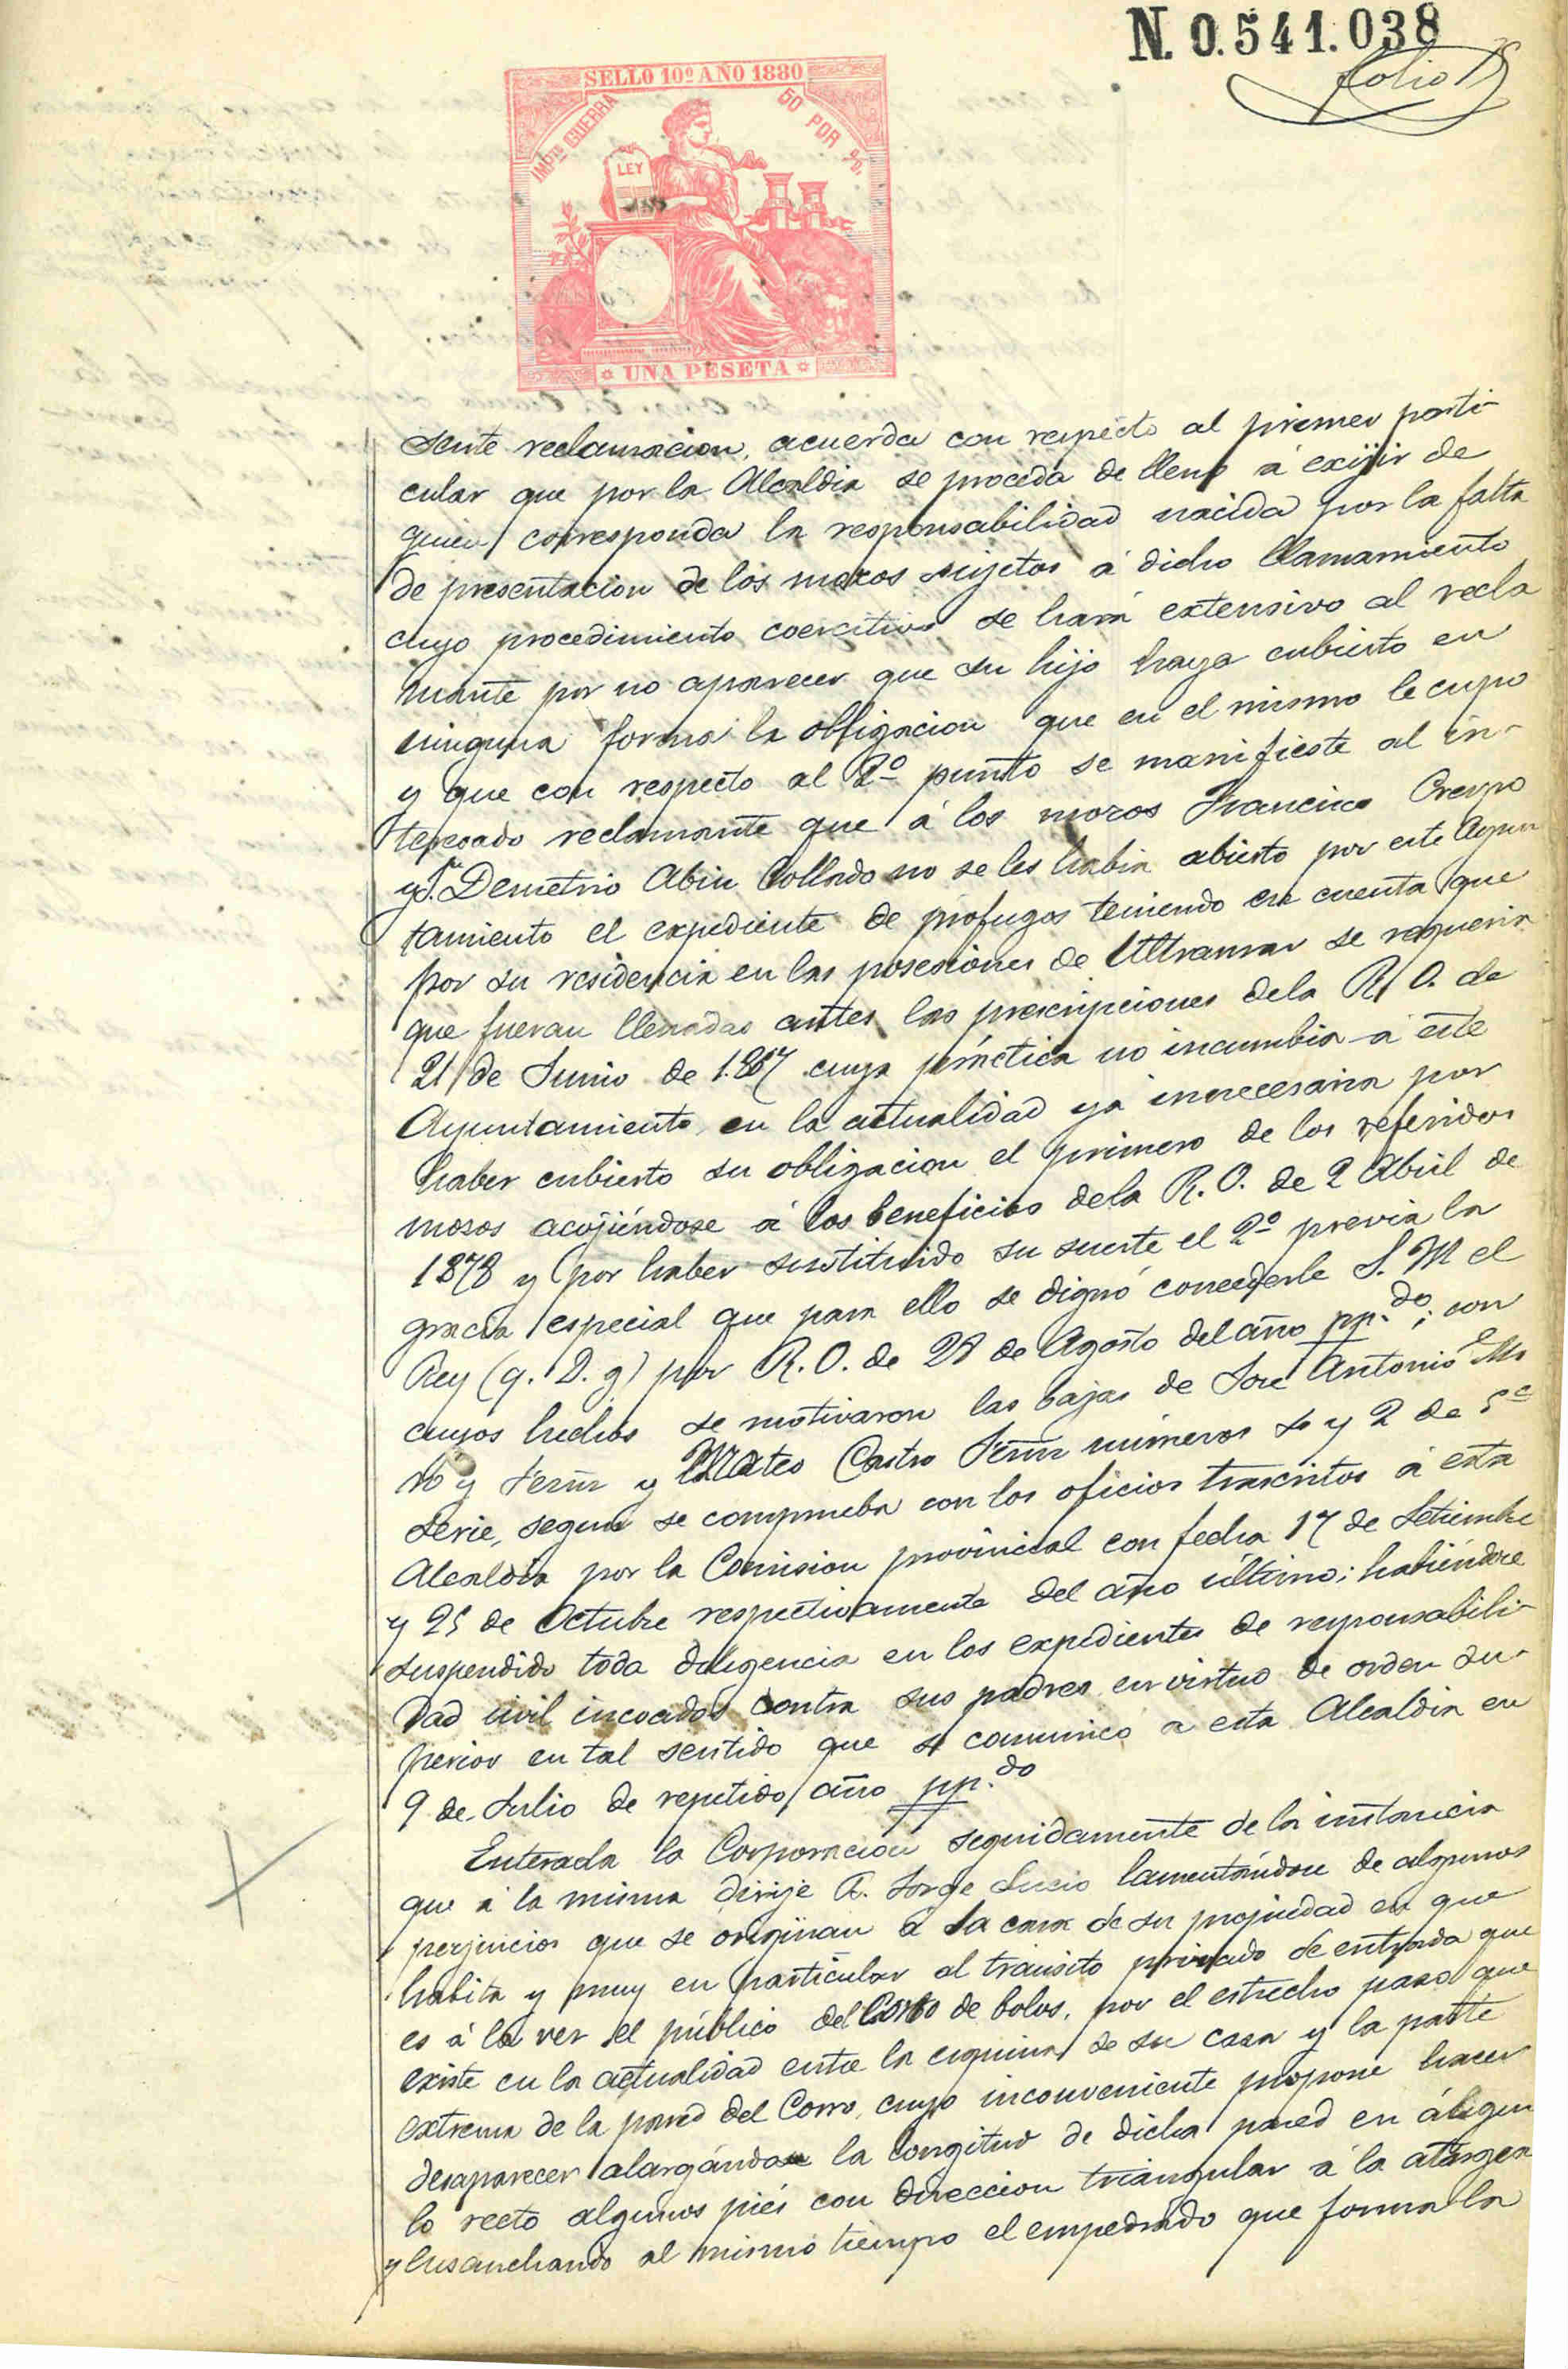 N. 0.541.038
folio
SELLO 10º AÑO 1880
IMPto GUERRA 50 POR %
LEY
UNA PESETA
sente reclamacion, acuerda con respecto al primer parti-
cular que por la Alcaldia se proceda de lleno á exijir de
quien corresponda la responsabilidad nacida por la falta
de presentacion de los mozos sujetos á dicho llamamiento
cuyo procedimiento coercitivo se hará extensivo al recla
mante por no aparecer que su hijo haya cubierto en
ninguna forma la obligacion que en el mismo le cupo
y que con respecto al 2º punto se manifieste al in-
teresado reclamante que á los mozos Francisco Crespo
y Demetrio Abin Collado no se les habia abierto por este Ayun
tamiento el expediente de profugos teniendo en cuenta que
por su residencia en las posesiones de Ultramar se requeria
que fueran llenadas antes las prescripciones dela R. O. de
21 de Junio de 1.867 cuya práctica no incumbia á este
Ayuntamiento en la actualidad ya innecesaria por
haber cubierto su obligacion el primero de los referidos
mozos acojiéndose á los beneficios dela R. O. de 2 Abril de
1878 y por haber sustituido su suerte el 2º previa la
gracia especial que para ello se dignó concederle S. M el
Rey (q. D. g) por R. O. de 28 de Agosto del año pp.do; con
cuyos hechos se motivaron las bajas de José Antonio
y y Mateo Castro números y 2 de 5ª
serie, segun se comprueba con los oficios trascritos á esta
Alcaldia por la Comision provincial con fecha 17 de Setiembre
y 25 de Octubre respectivamente del año último; habiéndose
suspendido toda diligencia en los expedientes de responsabili-
dad civil incoados contra sus padres en virtud de orden su-
perior en tal sentido que se comunicó a esta Alcaldia en
9 de Julio de repetido año pp.do
Enterada la Corporacion seguidamente de la instancia
que á la misma dirije Jorge Lucio lamentándose de algunos
perjuicios que se originan á la casa de su propiedad en que
habita y muy en particular al transito privado de entrada que
es á la vez el público del Corro de bolos, por el estrecho paso que
existe en la actualidad entre la esquina de su casa y la parte
extrema de la pared del Corro, cuyo inconveniente propone hacer
desaparecer alargándose la longitud de dicha pared en ángu
lo recto algunos piés con direccion triangular á la atargea
y ensanchando al mismo tiempo el empedrado que forma la